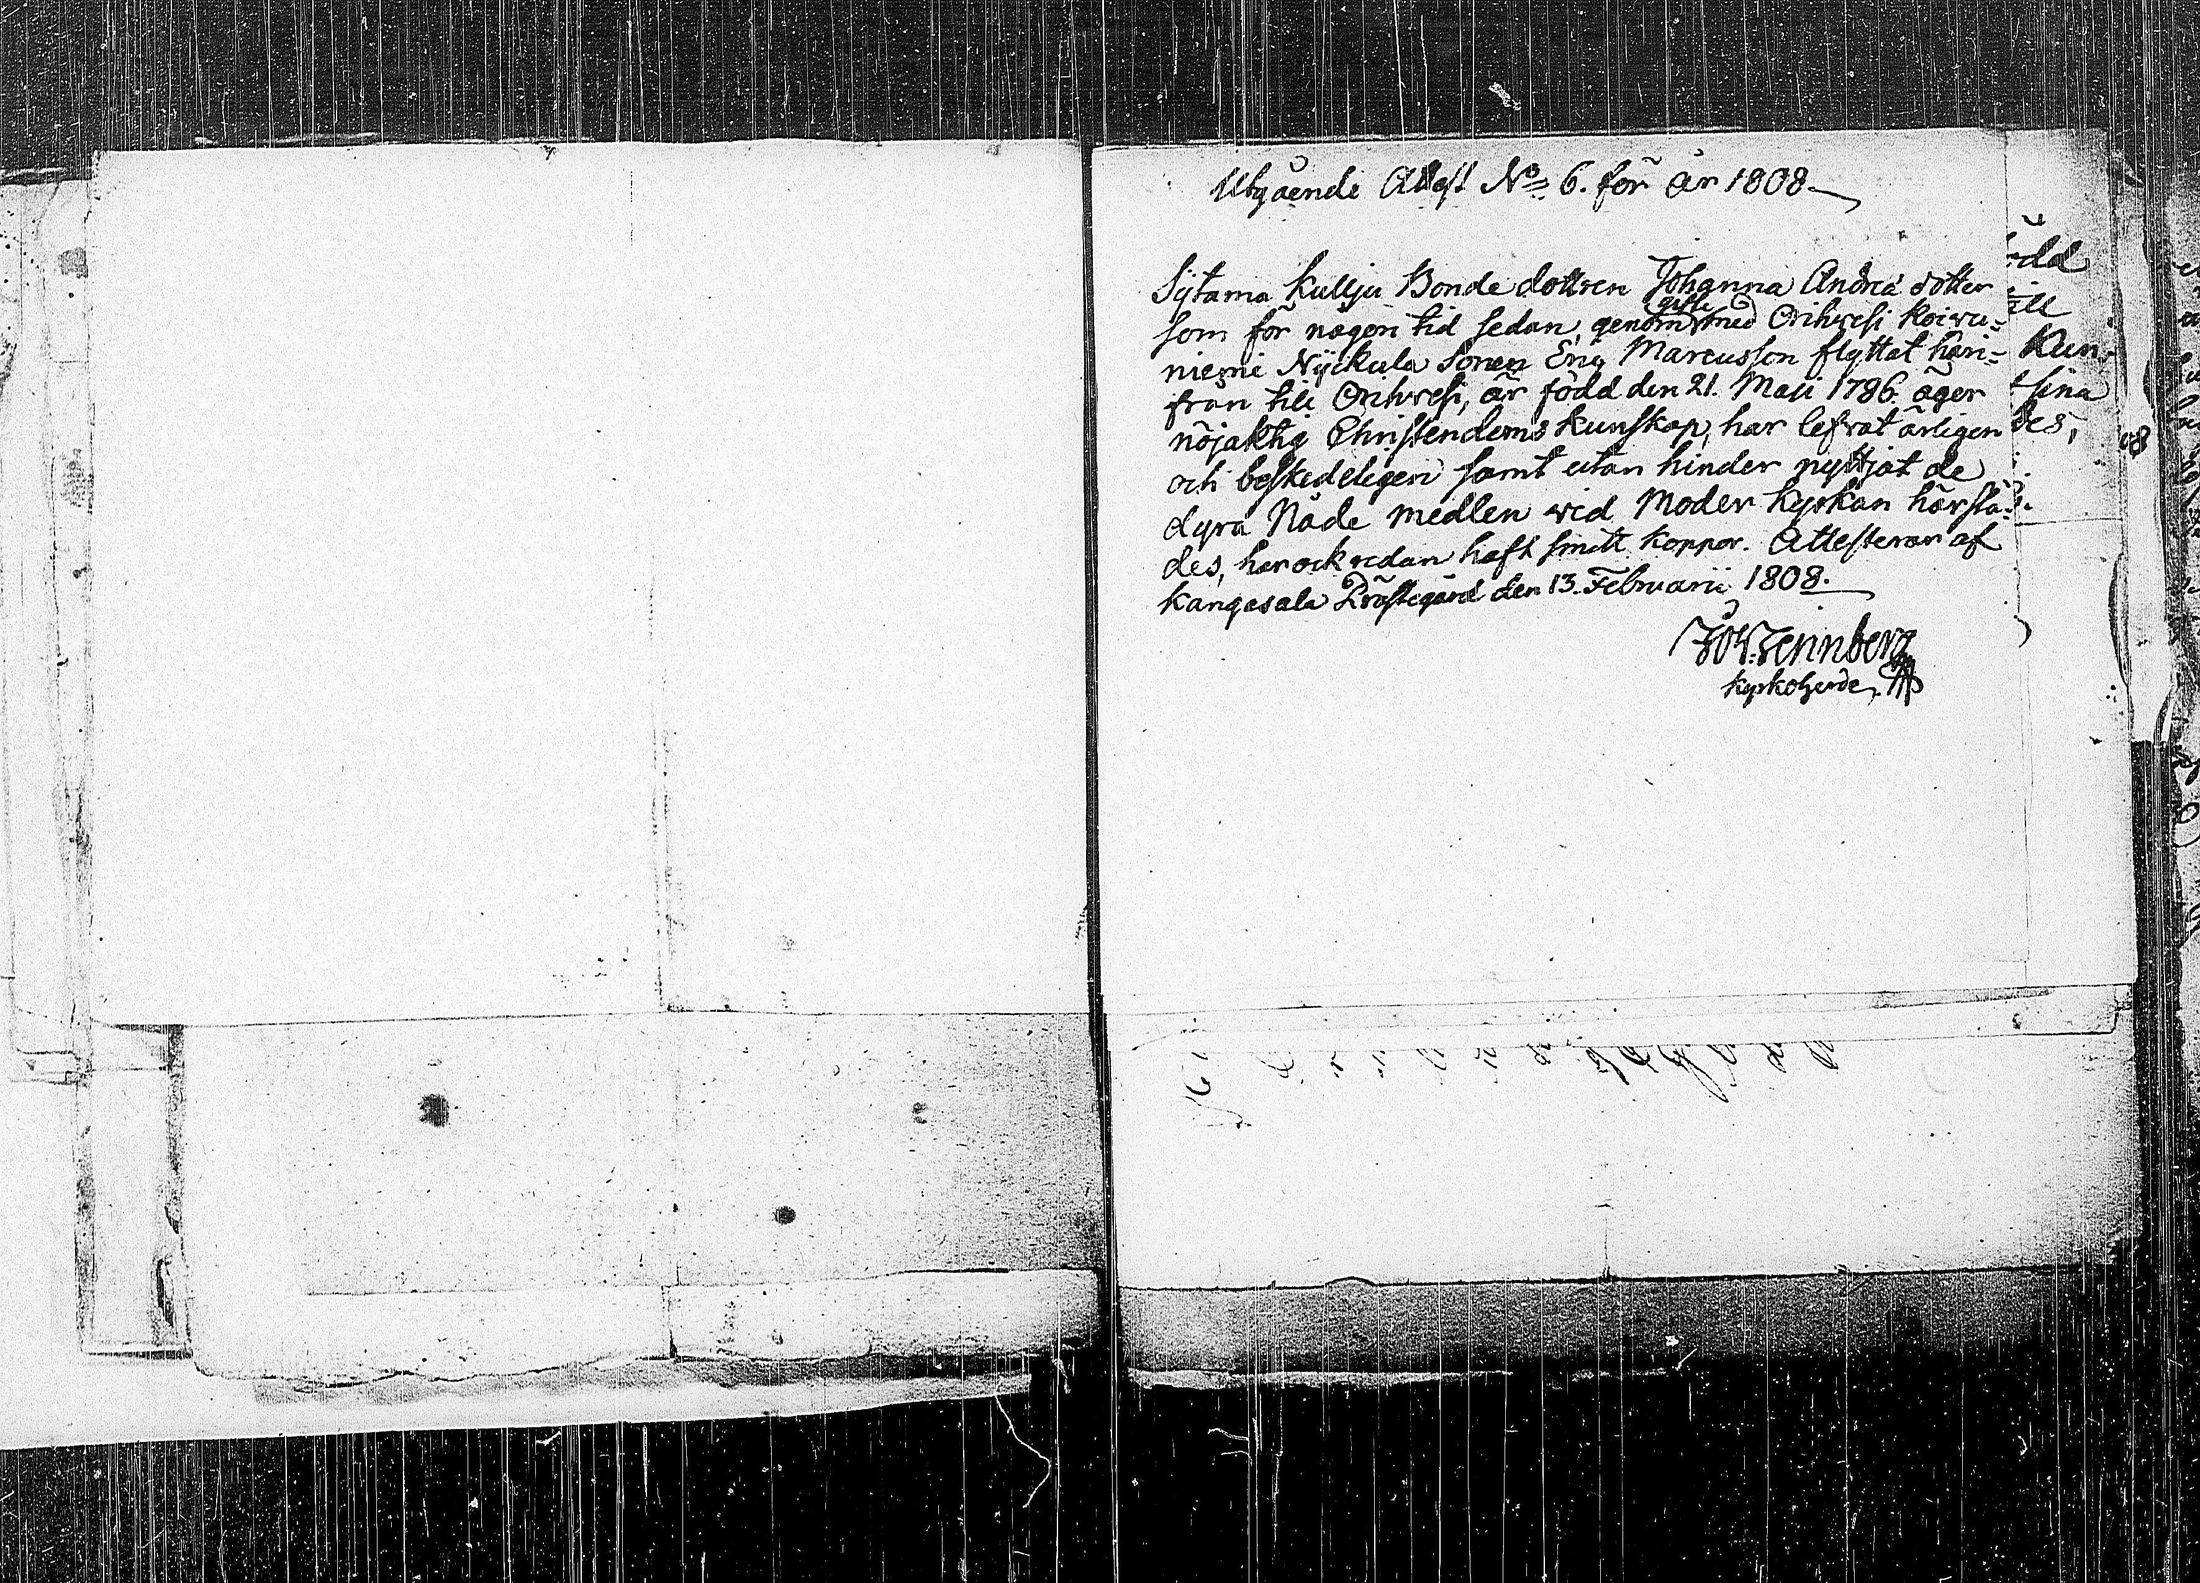 Utgående Attest No 6. för år 1808.
Sytama Kullju Bonde dottren Johanna Andreæ dotter
som för någon tid sedan, genom gifte med Orihvesi Koivu-
niemi Nyckula sonen Eriq Marcusson flyttat häri-
från till Orihvesi, är född den 21. Maii 1786. äger
nöjaktig Christendoms kunskap, har lefvat ärligen
och beskedeligen samt utan hinder nyttjat de
dyra Nåde medlen vid Moder kyrkan härstä-
des, har ock redan haft smitt koppor. Attesterar af
Kangasala Prästegård den 13. Februarii 1808.
Joh. Zennberg
Kyrkoherde.
ödd
till
Kun-
sina
des,
08